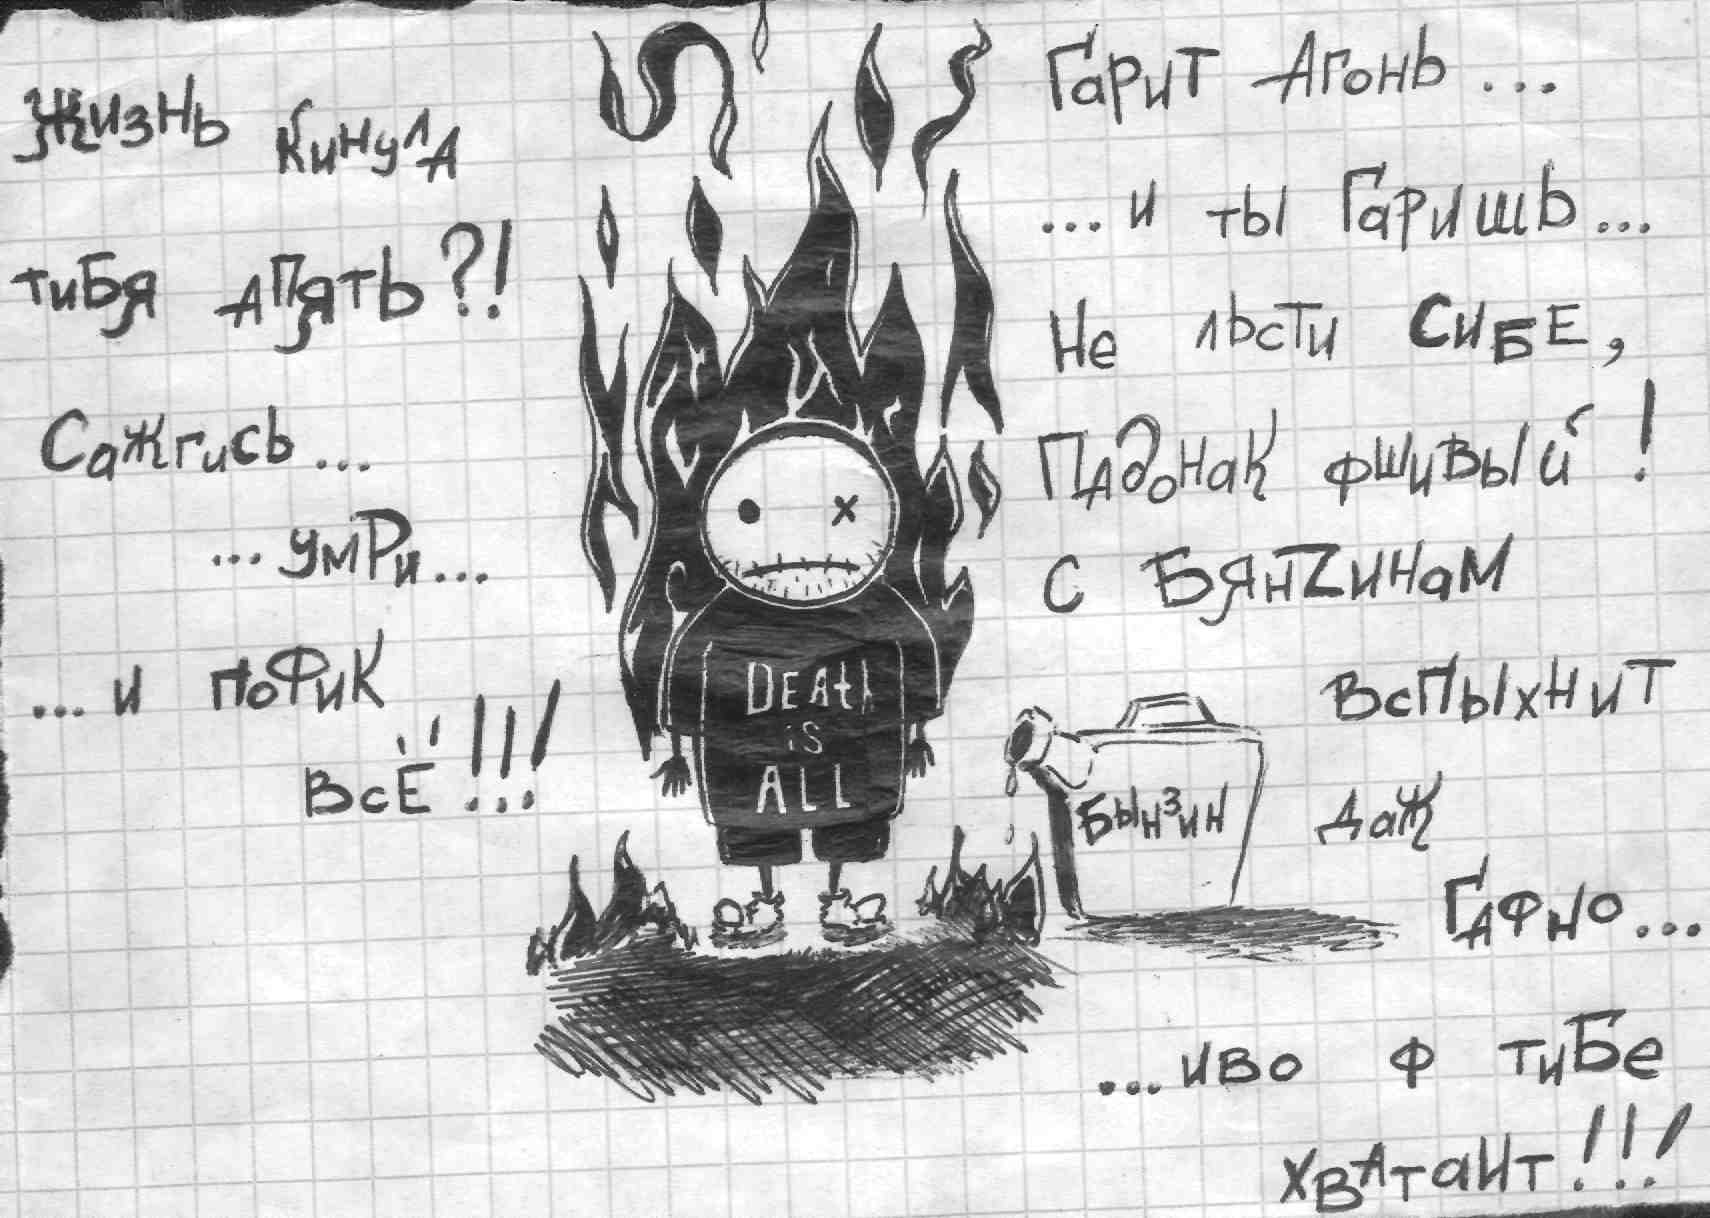 Жизнь кинула
тибя апять?!
Сажгись...
...умри...
...и пофик
всё!!!
DEAth
is
ALL
Бынзин
Гарит агонь...
...и ты гаришь...
Не льсти сибе,
Падонак фшивый!
С бянzинам
вспыхнит
даж
гафно...
...иво ф тибе
хватаит!!!